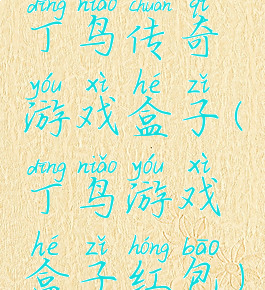 dīng niǎo chuán qí
丁鸟传奇
yóu xì hé zǐ
游戏盒子(
dīng niǎo yóu xì
丁鸟游戏
hé zǐ hóng bāo
盒子红包)